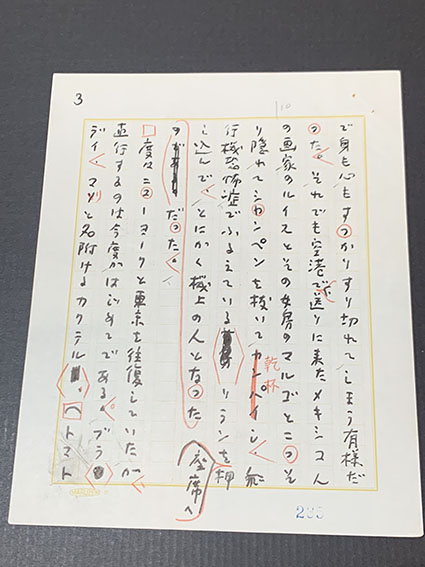 3
で身も心もすつかりすり切れてしまう有様だ
つた。それでも空港で送りに来たメキシコ人
の画家のルイスとその女房のマルゴとこつそ
り隠れてシヤンペンを抜いてカンパイし、飛
乾杯
行機恐怖症でふるえている リランを押
座席へ
し込んで、とにかく機上の人となつた
のだ だつた。
度々ニューヨークと東京を往復していたが、
直行するのは今度がはじめてである。ブラ
デイ・マリと名附けるカクテル トマト
235